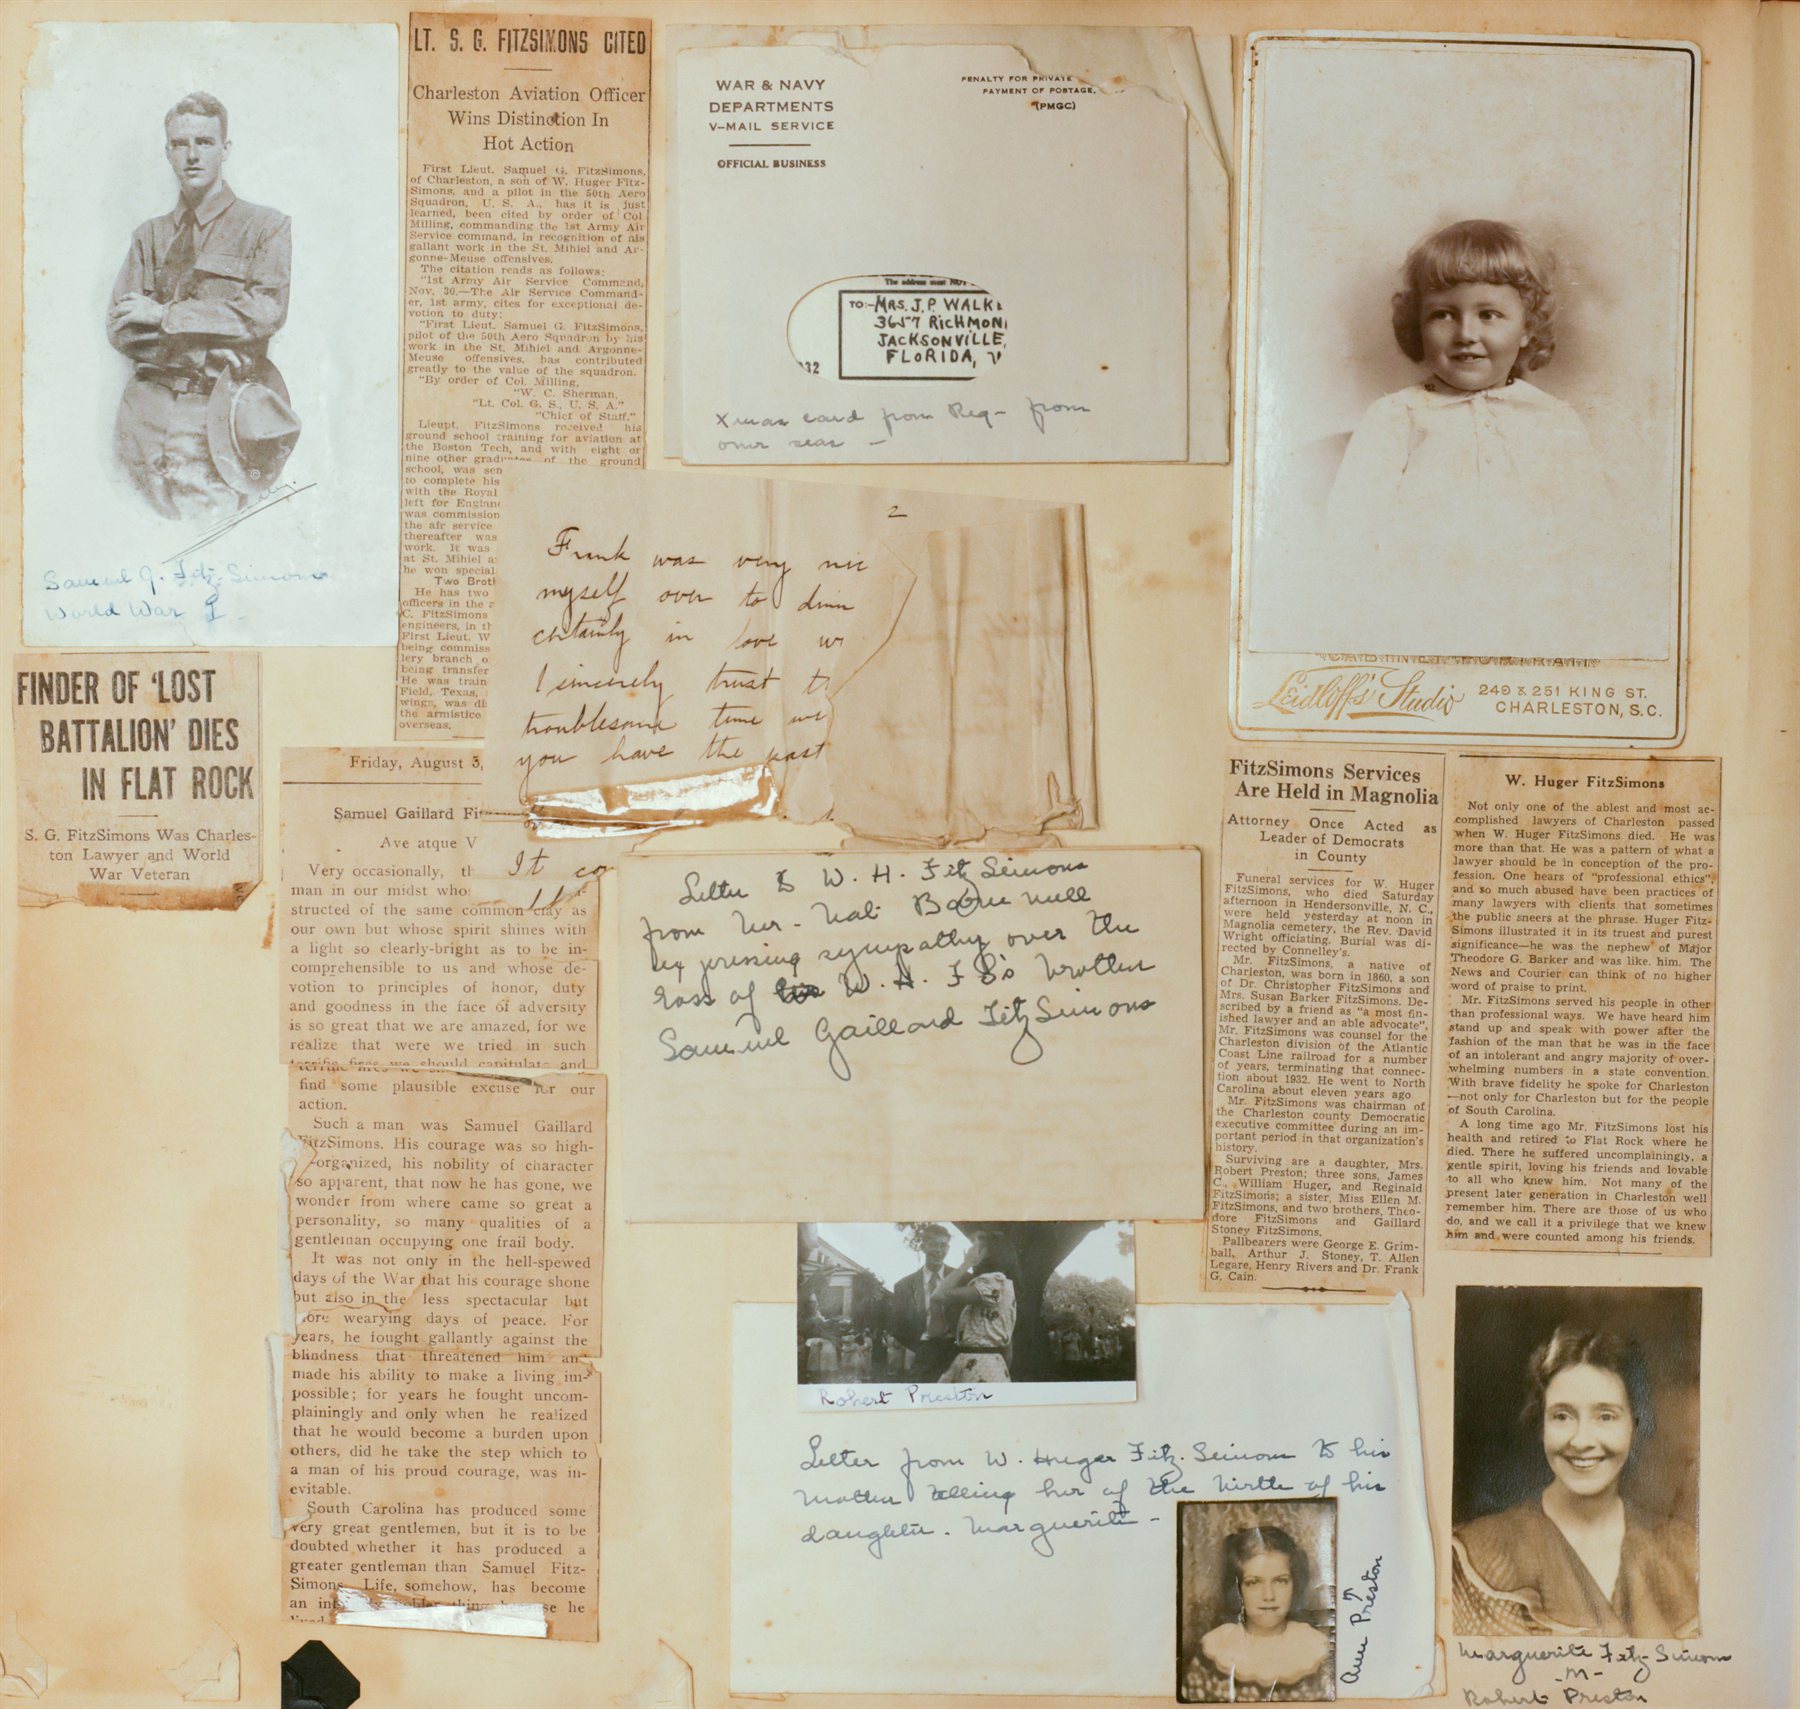 Samuel G. Fitz-Simons
World War I
LT. S. G. FITZSIMONS CITED
Charleston Aviation Officer
Wins Distinction In
Hot Action
First Lieut. Samuel G. FitzSimons,
of Charleston, a son of W. Huger Fitz-
Simons, and a pilot in the 50th Aero
Squadron, U. S. A., has it is just
learned, been cited by order of Col
Milling, commanding the 1st Army Air
Service command, in recognition of his
gallant work in the St. Mihiel and Ar-
gonne-Meuse offensives.
The citation reads as follows:
"1st Army Air Service Command,
Nov. 30.—The Air Service Command-
er, 1st army, cites for exceptional de-
votion to duty:
"First Lieut. Samuel G. FitzSimons,
pilot of the 50th Aero Squadron by his
work in the St. Mihiel and Argonne-
Meuse offensives, has contributed
greatly to the value of the squadron.
"By order of Col. Milling,
"W. C. Sherman,
"Lt. Col. G. S., U. S. A."
"Chief of Staff."
Lieupt. FitzSimons received his
ground school training for aviation at
the Boston Tech, and with eight or
nine other graduates of the ground
school, was sen
to complete his
with the Royal
left for England
was commission
the air service
thereafter was
work. It was
at St. Mihiel a
he won special
Two Brot
He has two
officers in the a
C. FitzSimons
engineers, in th
First Lieut. W
being commiss
lery branch o
being transfer
He was train
Field, Texas,
wings, was di
the armistice
overseas.
WAR & NAVY
DEPARTMENTS
V-MAIL SERVICE
OFFICIAL BUSINESS
PENALTY FOR PRIVATE
PAYMENT OF POSTAGE,
(PMGC)
The address must NOT
TO:- MRS. J. P. WALK
3657 RICHMON
JACKSONVILLE,
FLORIDA,
332
Xmas card from Reg- from
over seas -
CABINET PORTRAIT
Leidloff's Studio 249 & 251 KING ST.
CHARLESTON, S.C.
FINDER OF 'LOST
BATTALION' DIES
IN FLAT ROCK
S. G. FitzSimons Was Charles-
ton Lawyer and World
War Veteran
2
Frank was very nic
myself over to dinn
certainly in love w
I sincerely trust t
troublesome time we
you have the past
It co
Friday, August 3,
Samuel Gaillard Fit
Ave atque V
Very occasionally, th
man in our midst who
structed of the same common clay as
our own but whose spirit shines with
a light so clearly-bright as to be in-
comprehensible to us and whose de-
votion to principles of honor, duty
and goodness in the face of adversity
is so great that we are amazed, for we
realize that were we tried in such
terrific fires we should capitulate and
find some plausible excuse for our
action.
Such a man was Samuel Gaillard
FitzSimons. His courage was so high-
organized, his nobility of character
so apparent, that now he has gone, we
wonder from where came so great a
personality, so many qualities of a
gentleman occupying one frail body.
It was not only in the hell-spewed
days of the War that his courage shone
but also in the less spectacular but
more wearying days of peace. For
years, he fought gallantly against the
blindness that threatened him and
made his ability to make a living im-
possible; for years he fought uncom-
plainingly and only when he realized
that he would become a burden upon
others, did he take the step which to
a man of his proud courage, was in-
evitable.
South Carolina has produced some
very great gentlemen, but it is to be
doubted whether it has produced a
greater gentleman than Samuel Fitz-
Simons. Life, somehow, has become
an inf nobler thing because he
lived
Letter to W. H. Fitz Simons
from Mr. Nat. Barnwell
expressing sympathy over the
loss of his W. H. F S's brother
Samuel Gaillard FitzSimons
FitzSimons Services
Are Held in Magnolia
Attorney Once Acted as
Leader of Democrats
in County
Funeral services for W. Huger
FitzSimons, who died Saturday
afternoon in Hendersonville, N. C.,
were held yesterday at noon in
Magnolia cemetery, the Rev. David
Wright officiating. Burial was di-
rected by Connelley's.
Mr. FitzSimons, a native of
Charleston, was born in 1860, a son
of Dr. Christopher FitzSimons and
Mrs. Susan Barker FitzSimons. De-
scribed by a friend as "a most fin-
ished lawyer and an able advocate",
Mr. FitzSimons was counsel for the
Charleston division of the Atlantic
Coast Line railroad for a number
of years, terminating that connec-
tion about 1932. He went to North
Carolina about eleven years ago
Mr. FitzSimons was chairman of
the Charleston county Democratic
executive committee during an im-
portant period in that organization's
history.
Surviving are a daughter, Mrs.
Robert Preston; three sons, James
C., William Huger, and Reginald
FitzSimons; a sister, Miss Ellen M.
FitzSimons, and two brothers, Theo-
dore FitzSimons and Gaillard
Stoney FitzSimons.
Pallbearers were George E. Grim-
ball, Arthur J. Stoney, T. Allen
Legare, Henry Rivers and Dr. Frank
G. Cain.
W. Huger FitzSimons
Not only one of the ablest and most ac-
complished lawyers of Charleston passed
when W. Huger FitzSimons died. He was
more than that. He was a pattern of what a
lawyer should be in conception of the pro-
fession. One hears of "professional ethics",
and so much abused have been practices of
many lawyers with clients that sometimes
the public sneers at the phrase. Huger Fitz-
Simons illustrated it in its truest and purest
significance—he was the nephew of Major
Theodore G. Barker and was like him. The
News and Courier can think of no higher
word of praise to print.
Mr. FitzSimons served his people in other
than professional ways. We have heard him
stand up and speak with power after the
fashion of the man that he was in the face
of an intolerant and angry majority of over-
whelming numbers in a state convention.
With brave fidelity he spoke for Charleston
—not only for Charleston but for the people
of South Carolina.
A long time ago Mr. FitzSimons lost his
health and retired to Flat Rock where he
died. There he suffered uncomplainingly, a
gentle spirit, loving his friends and lovable
to all who knew him. Not many of the
present later generation in Charleston well
remember him. There are those of us who
do, and we call it a privilege that we knew
him and were counted among his friends.
Robert Preston
Letter from W. Huger Fitz-Simons to his
mother telling her of the birth of his
daughter. Marguerite -
Ann Preston
Marguerite Fitz-Simons
-m-
Robert Preston